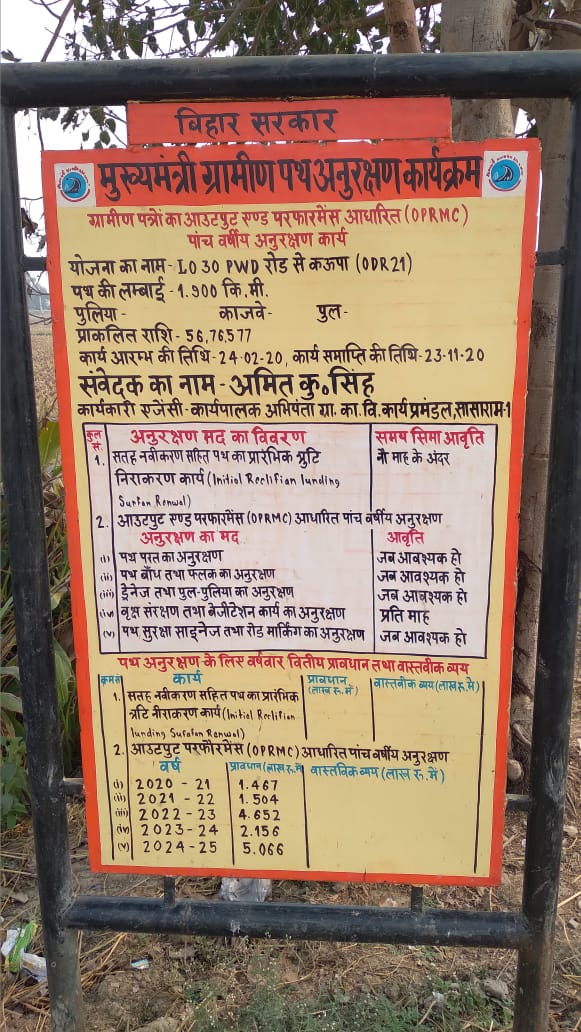 बिहार सरकार
मुख्यमंत्री ग्रामीण पथ अनुरक्षण कार्यक्रम
ग्रामीण पथों का आउटपुट एण्ड परफारमेंस आधारित (OPRMC)
पांच वर्षीय अनुरक्षण कार्य
योजना का नाम - LO 30 PWD रोड से कऊपा (ODR21)
पथ की लम्बाई - 1.900 कि.मी.
पुलिया - काजवे - पुल -
प्राकलित राशि - 56,76,577
कार्य आरम्भ की तिथि - 24-02-20, कार्य समाप्ति की तिथि - 23-11-20
संवेदक का नाम - अमित कु॰ सिंह
कार्यकारी एजेंसी - कार्यपालक अभियंता ग्रा. का. वि. कार्य प्रमंडल, सासाराम-1
सं. अनुरक्षण मद का विवरण समय सिमा आवृति
1. सतह नवीकरण सहित पथ का प्रारंभिक त्रुटि नौ माह के अंदर
निराकरण कार्य (Initial Reclifian lunding
Surfan Renwal)
2. आउटपुट एण्ड परफारमेंस (OPRMC) आधारित पांच वर्षीय अनुरक्षण
अनुरक्षण का मद आवृति
(i) पथ परत का अनुरक्षण जब आवश्यक हो
(ii) पथ बाँध तथा फ्लक का अनुरक्षण जब आवश्यक हो
(iii) ड्रेनेज तथा पुल-पुलिया का अनुरक्षण जब आवश्यक हो
(iv) वृक्ष संरक्षण तथा वेजीटेशन कार्य का अनुरक्षण प्रति माह
(v) पथ सुरक्षा साइनेज तथा रोड मार्किंग का अनुरक्षण जब आवश्यक हो
पथ अनुरक्षण के लिए वर्षवार वितीय प्रावधान तथा वास्तवीक व्यय
क्रमसं कार्य प्रावधान (लाख रू. में) वास्तवीक व्यय (लाख रू. में)
1. सतह नवीकरण सहित पथ का प्रारंभिक
त्रटि नीराकरण कार्य (Initial Reclifian
lunding Sufafan Renwal)
2. आउटपुट परफौरमेंस (OPRMC) आधारित पांच वर्षीय अनुरक्षण
वर्ष प्रावधान (लाख रू. में) वास्तविक व्यय (लाख रू. में)
(i) 2020 - 21 1.467
(ii) 2021 - 22 1.504
(iii) 2022 - 23 4.652
(iv) 2023 - 24 2.156
(v) 2024 - 25 5.066